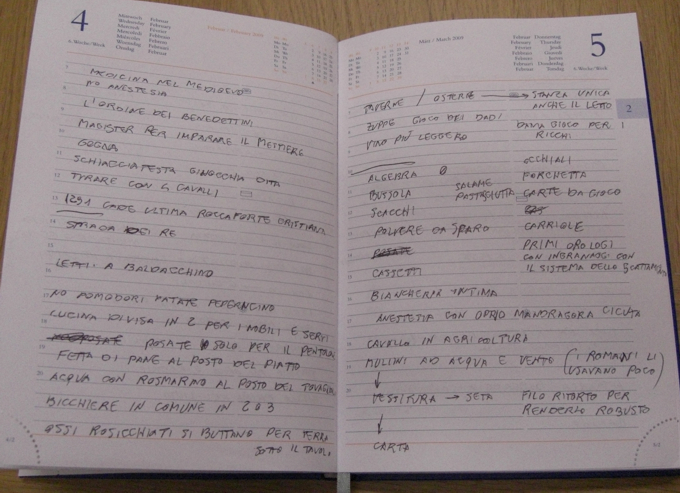 4
Mittwoch Februar
Wednesday February
Mercredi Février
6. Woche/Week
MEDICINA NEL MEDIOEVO
NO ANESTESIA
L'ORDINE DEI BENEDETTINI
MAGISTER PER IMPARARE IL MESTIERE
GOGNA
SCHIACCIATESTA GINOCCHIA DITA
TIRARE CON 4 CAVALLI
1291 CADE ULTIMA ROCCAFORTE CRISTIANA
STRADA DEI RE
LETTI A BALDACCHINO
NO POMODORI PATATE PEPERONCINO
CUCINA DIVISA IN 2 PER I NOBILI E SERVI
POSATE SOLO PER IL PENTOLONE
FETTA DI PANE AL POSTO DEL PIATTO
ACQUA CON ROSMARINO AL POSTO DEL TOVAGLIOLO
BICCHIERE IN COMUNE IN 2 O 3
OSSI ROSICCHIATI SI BUTTANO PER TERRA
SOTTO IL TAVOLO
März / March 2009
Februar Donnerstag
February Thursday
Février Jeudi
5
6. Woche/Week
2
TAVERNE / OSTERIE → STANZA UNICA
ANCHE IL LETTO
ZUPPE GIOCO DEI DADI DAMA GIOCO PER I
VINO PIÙ LEGGERO RICCHI
OCCHIALI
ALGEBRA 0 FORCHETTA
BUSSOLA SALAME PASTASCIUTTA CARTE DA GIOCO
SCACCHI
POLVERE DA SPARO CARRIOLE
POSATE PRIMI OROLOGI
CON INGRANAGGI CON
CASSETTI IL SISTEMA DELLO SCATTAMENTO
BIANCHERIA INTIMA
ANESTESIA CON OPPIO MANDRAGORA CICUTA
CAVALLO IN AGRICOLTURA
MULINI AD ACQUA E VENTO (I ROMANI LI
USAVANO POCO)
TESSITURA → SETA FILO RITORTO PER
RENDERLO ROBUSTO
CARTA